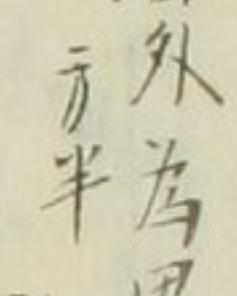 外為
方半